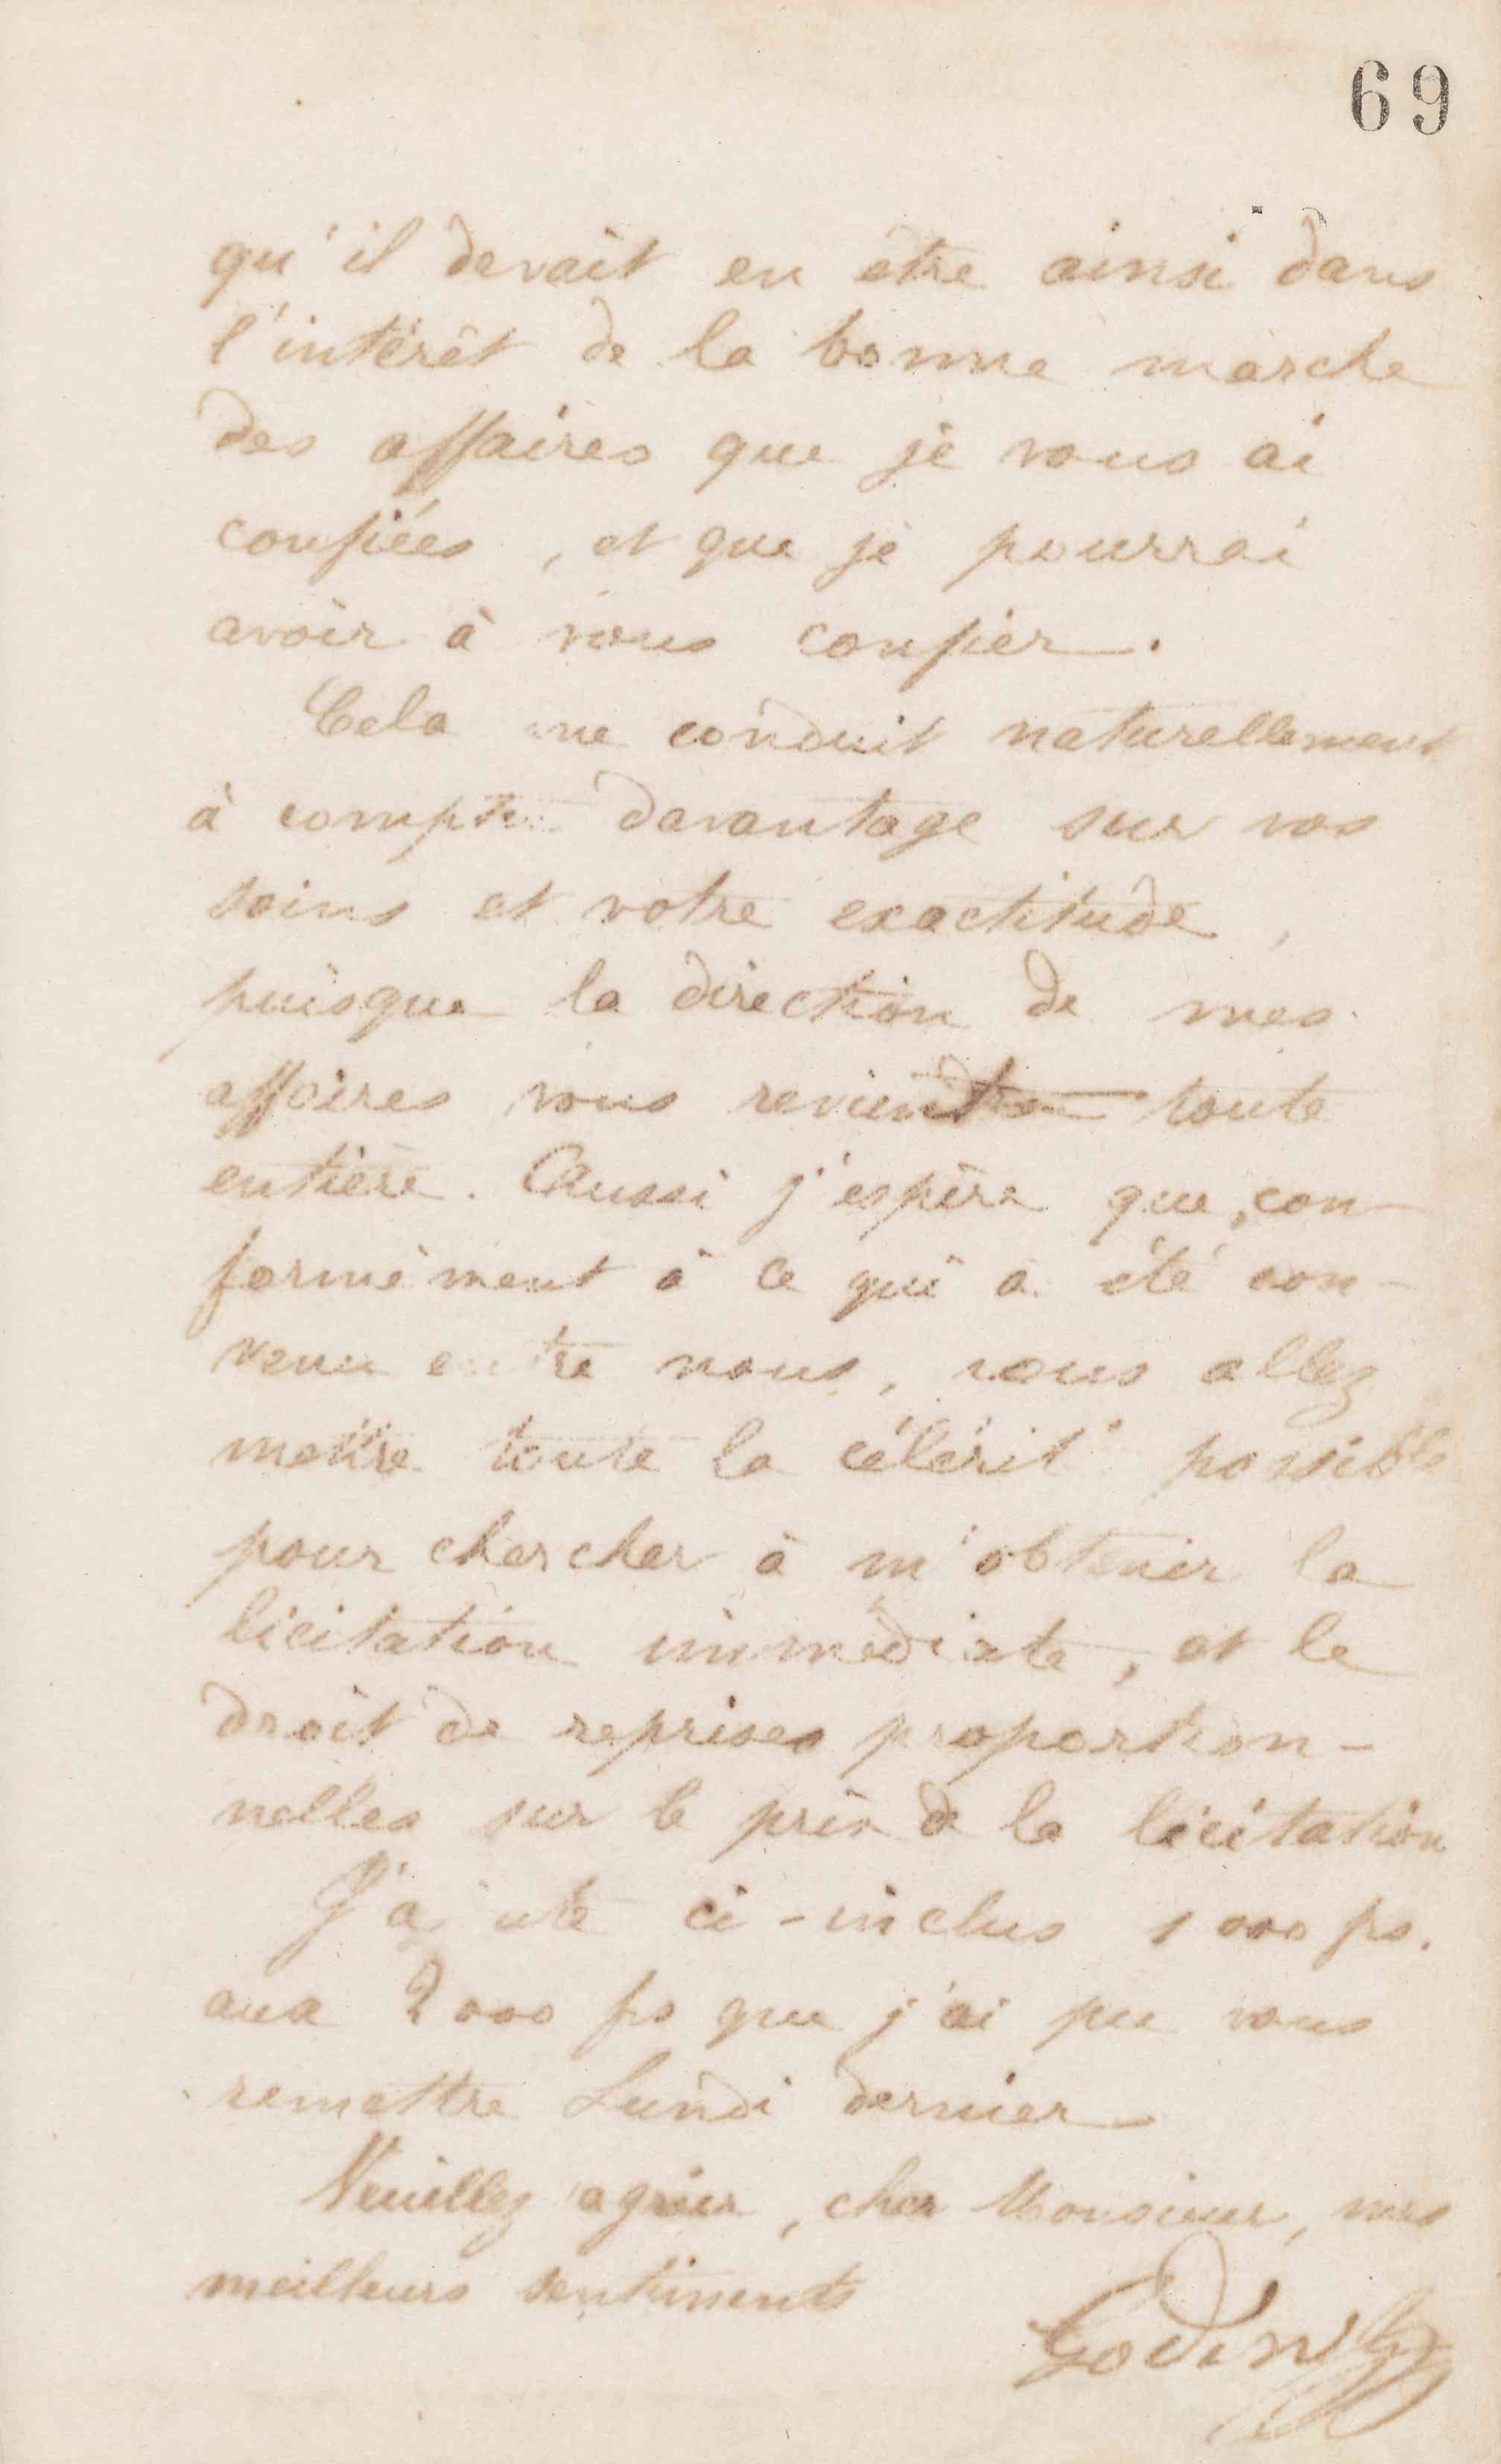 69
qu'il devait en être ainsi dans
l'intérêt de la bonne marche
des affaires que je vous ai
confiées, et que je pourrai
avoir à vous confier.
Cela me conduit naturellement
à compter davantage sur vos
soins et votre exactitude,
puisque la direction de mes
affaires vous revient toute
entière. Aussi j'espère que, con-
formément à ce qui a été con-
venu entre nous, vous allez
mettre toute la célérité possible
pour chercher à m'obtenir la
licitation immédiate, et le
droit de reprises proportion-
nelles sur le prix de la licitation
J'ajoute ci-inclus 1000 fs.
aux 2000 fs que j'ai pu vous
remettre Lundi dernier
Veuillez agréer, cher Monsieur, mes
meilleurs sentiments
Godin